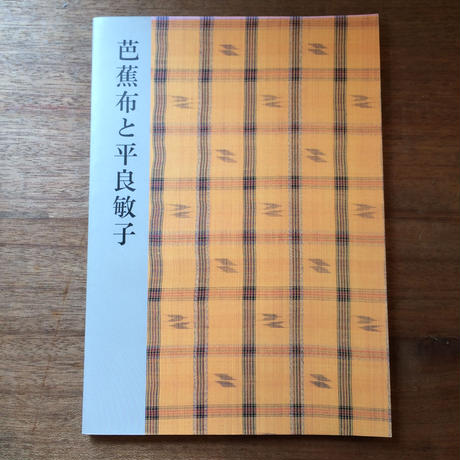 芭蕉布と平良敏子